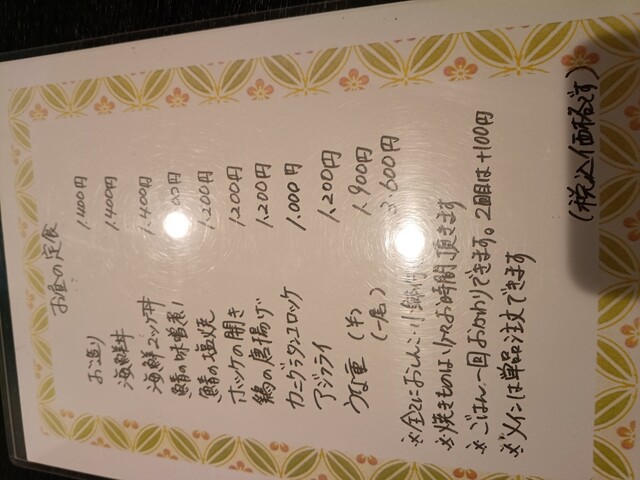 お昼の定食
お造り 1.400円
海鮮丼 1.400円
海鮮ユッケ丼 1.400円
鯖の味噌煮 00円
鯖の塩焼 1.200円
ホッケの開き 1200円
鶏の唐揚げ 1.200円
カニグラタンコロッケ 1.000円
アジフライ 1.200円
うな重 (半) 1.900円
(一尾) 3.600円
※全てにおしんこ・小鉢付
※焼きものは少々お時間頂きます
※ごはん一回おかわりできます。2回目は+100円
※メインは単品注文できます
(税込価格です)